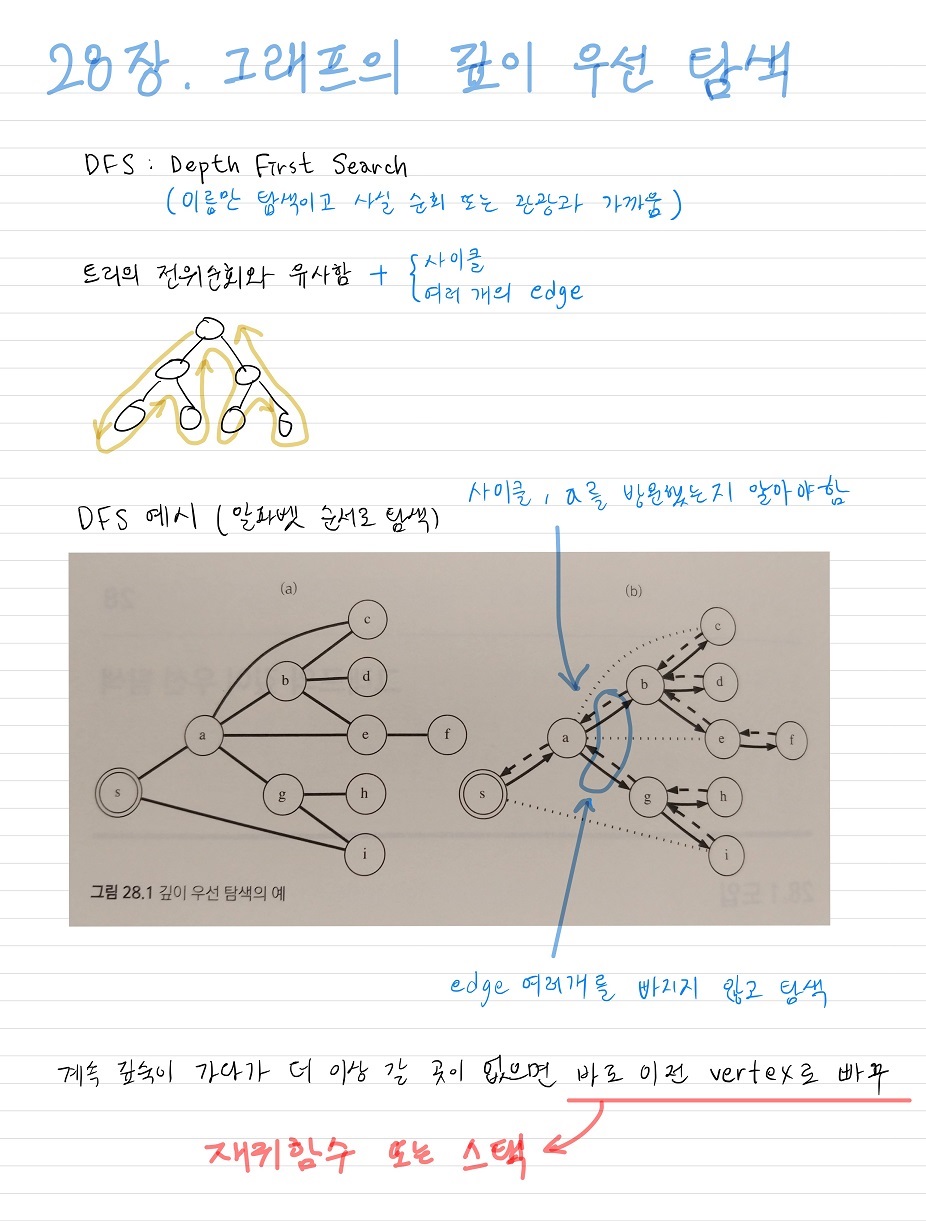 28장. 그래프의 깊이 우선 탐색
DFS : Depth First Search
(이름만 탐색이고 사실 순회 또는 관광과 가까움)
트리의 전위순회와 유사함 + { 사이클
여러 개의 edge
사이클, a를 방문했는지 알아야함
DFS 예시 (알파벳 순서로 탐색)
(a)
(b)
c
b
d
a
e
f
s
g
h
i
c
b
d
a
e
f
s
g
h
i
그림 28.1 깊이 우선 탐색의 예
edge 여러개를 빠지지 않고 탐색
계속 깊숙이 가다가 더 이상 갈 곳이 없으면 바로 이전 vertex로 빠꾸
재귀함수 또는 스택